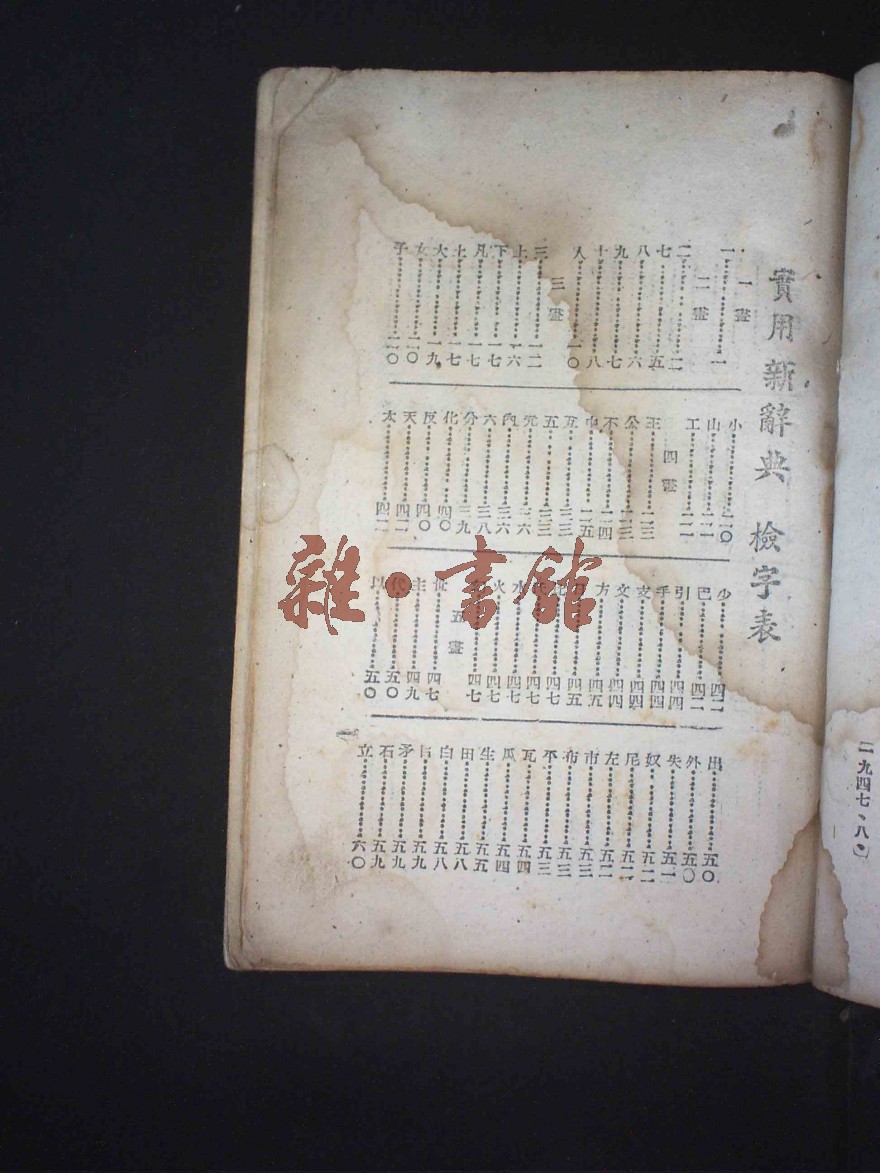 實用新辭典 檢字表
一畫
一 一
二畫
二 二
七 五
八 六
九 七
十 八
人 一〇
三畫
三 一二
上 一六
下 一七
凡 一七
土 一七
大 一九
女 二〇
子 二〇
小 二〇
山 二一
工 二一
四畫
王 二三
公 二三
不 二四
中 二五
互 三三
五 三三
元 三六
內 三六
六 三八
分 三九
化 四〇
反 四〇
天 四二
太 四二
少 四二
巴 四二
引 四四
手 四四
支 四四
文 四四
方 四五
四五
四七
四七
水 四七
火 四七
四七
五畫
主 四九
代 五〇
以 五〇
出 五〇
外 五〇
失 五一
奴 五二
尼 五二
左 五二
市 五三
布 五三
平 五三
瓦 五四
瓜 五四
生 五五
田 五八
白 五八
目 五九
矛 五九
石 五九
立 六〇
1
雜·書館
(一九四七、八)